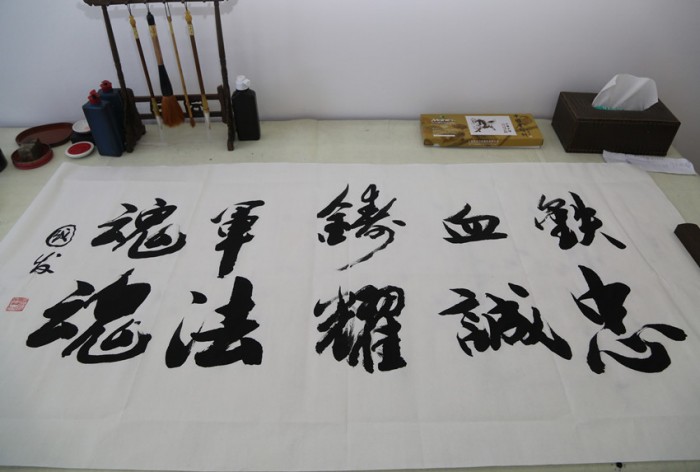 鐵血鑄軍魂
忠誠耀法魂
國发